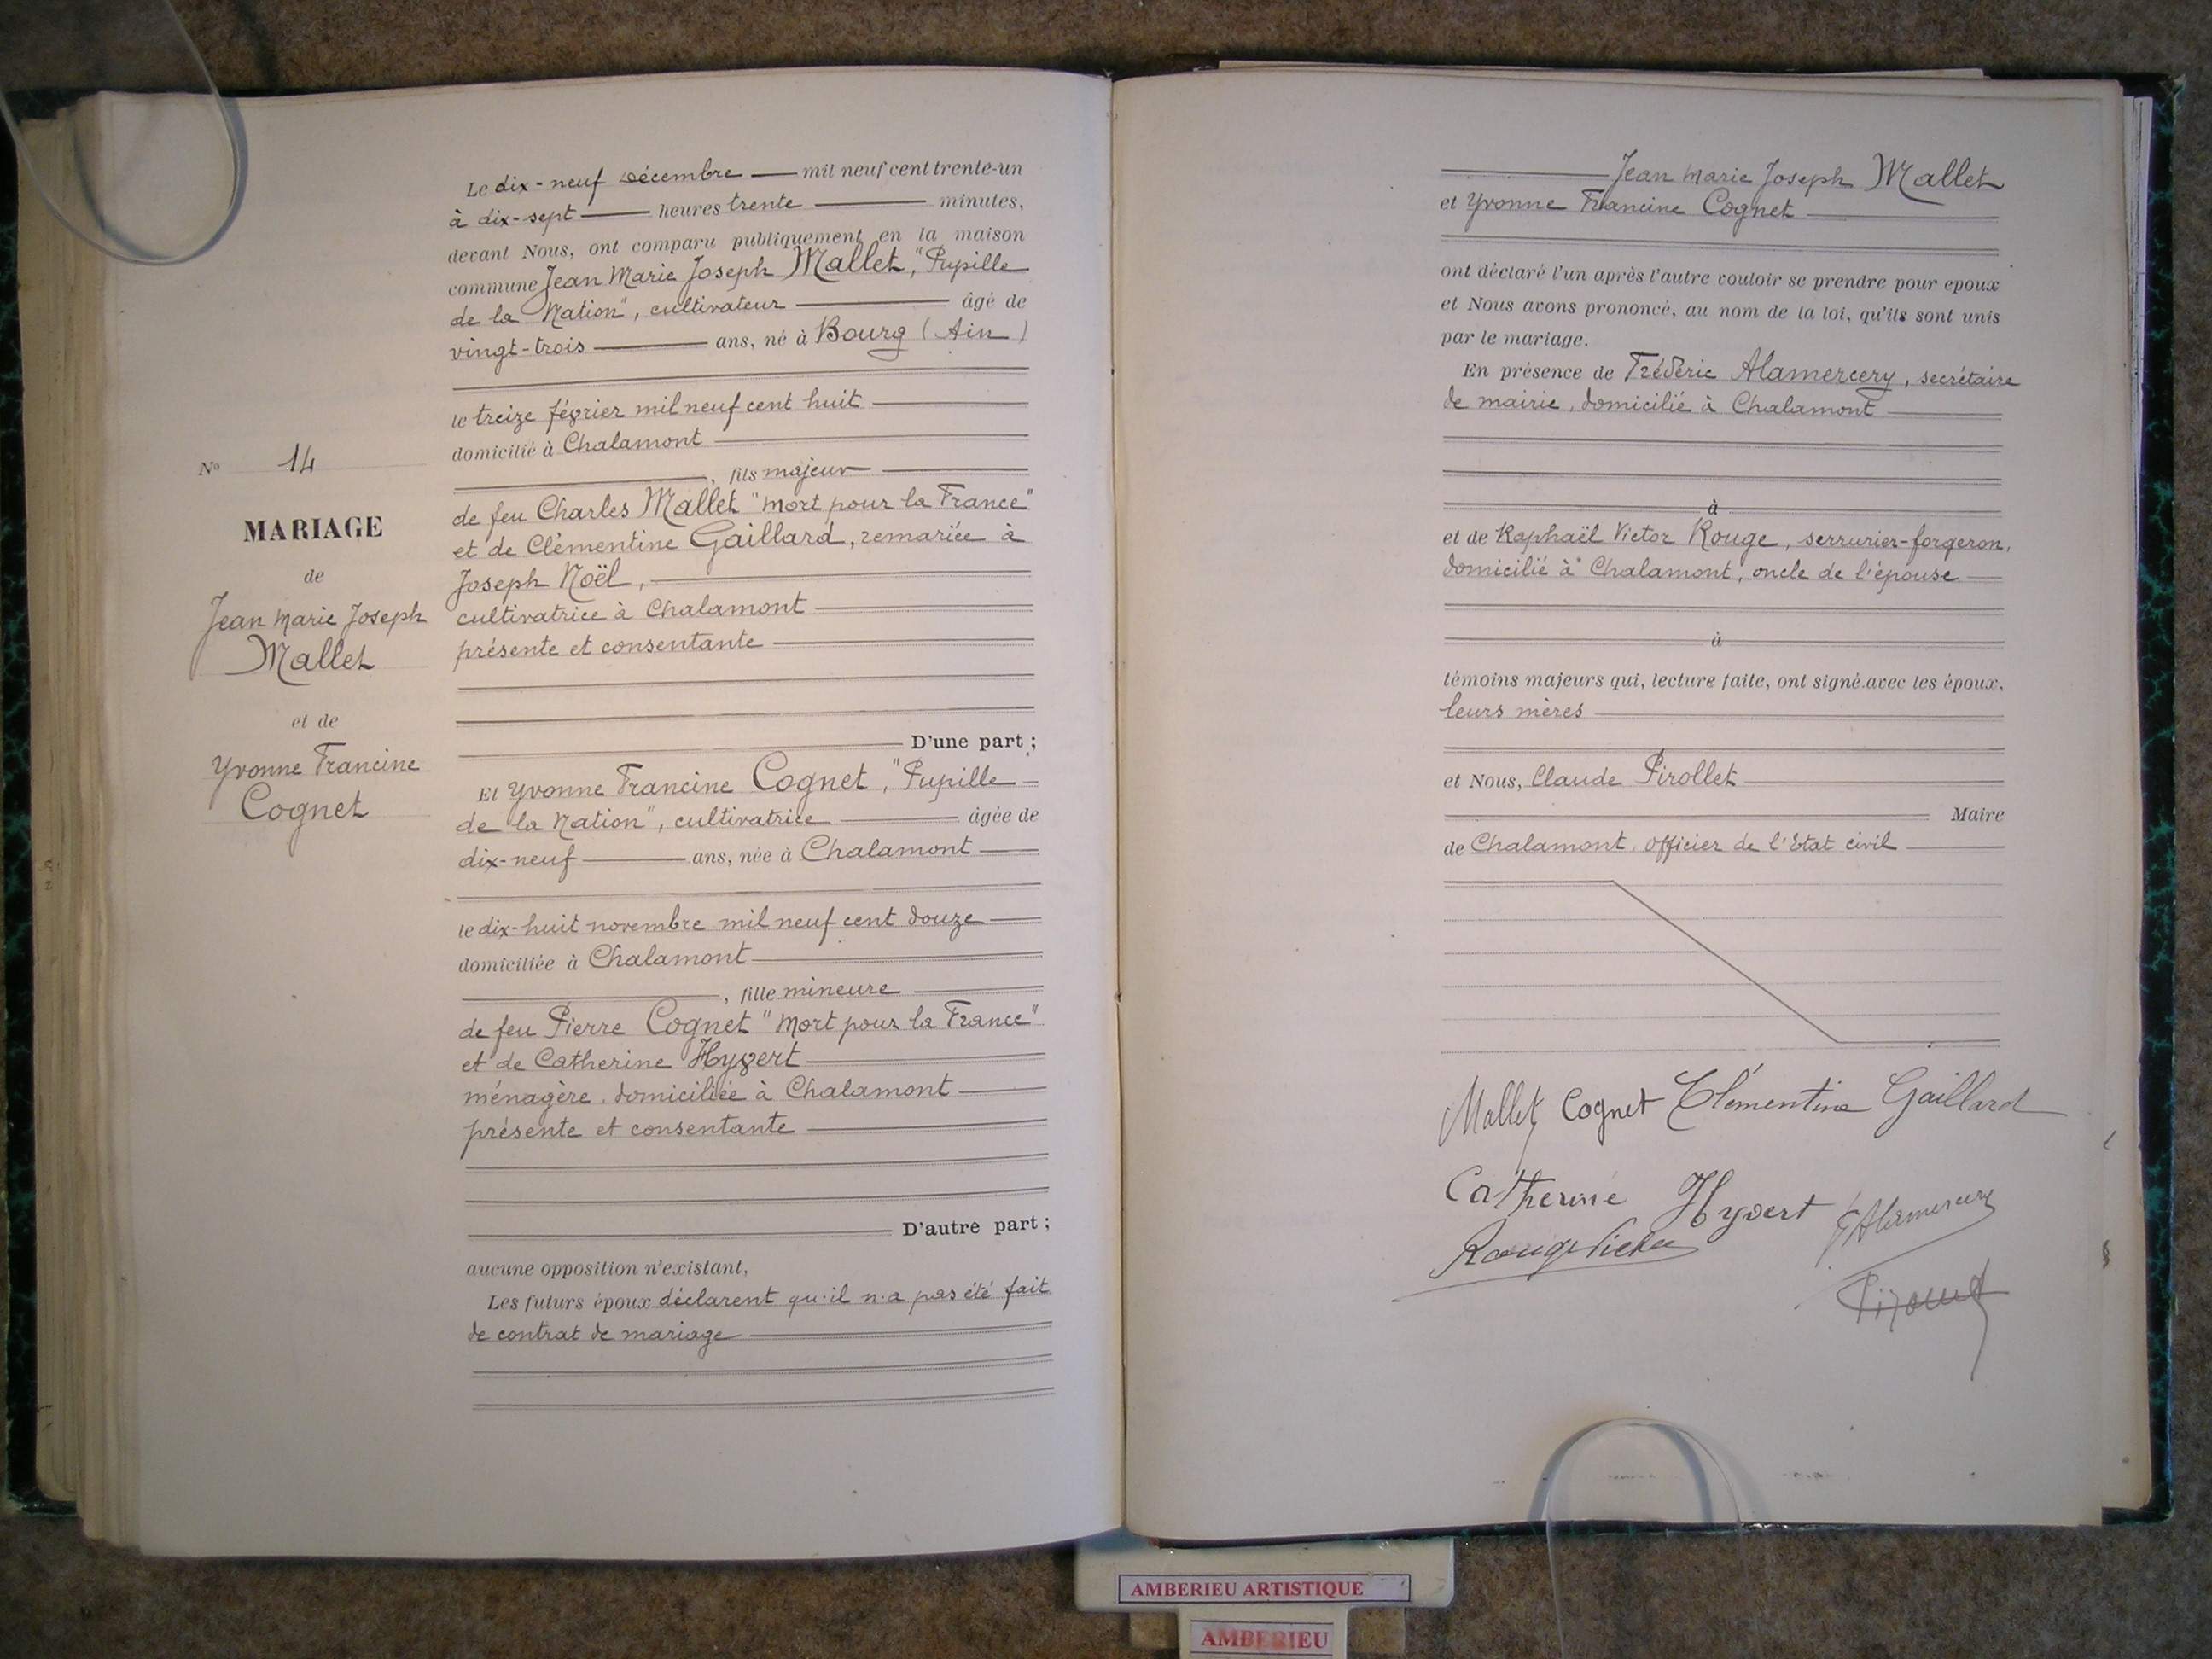 Le dix-neuf Décembre mil neuf cent trente-un
à dix-sept heures trente minutes,
devant Nous, ont comparu publiquement en la maison
commune Jean Marie Joseph Mallet, "Pupille
de la Nation", cultivateur âgé de
vingt-trois ans, né à Bourg (Ain)
le treize février mil neuf cent huit
domicilié à Chalamont
, fils majeur
de feu Charles Mallet "Mort pour la France"
et de Clémentine Gaillard, remariée à
Joseph Noël,
cultivatrice à Chalamont
présente et consentante
D'une part ;
Et Yvonne Francine Cognet, "Pupille
de la Nation", cultivatrice âgée de
dix-neuf ans, née à Chalamont
le dix-huit novembre mil neuf cent douze
domiciliée à Chalamont
, fille mineure
de feu Pierre Cognet "Mort pour la France"
et de Catherine Hyvert
ménagère, domiciliée à Chalamont
présente et consentante
D'autre part ;
aucune opposition n'existant,
Les futurs époux déclarent qu'il n'a pas été fait
de contrat de mariage
No 14
MARIAGE
de
Jean Marie Joseph
Mallet
et de
Yvonne Francine
Cognet
Jean Marie Joseph Mallet
et Yvonne Francine Cognet
ont déclaré l'un après l'autre vouloir se prendre pour epoux
et Nous avons prononcé, au nom de la loi, qu'ils sont unis
par le mariage.
En présence de Frédéric Alamercery, secrétaire
de mairie, domicilié à Chalamont
à
et de Raphaël Victor Rouge, serrurier-forgeron,
domicilié à Chalamont, oncle de l'épouse
à
témoins majeurs qui, lecture faite, ont signé avec les époux,
leurs mères
et Nous, Claude Pirollet
Maire
de Chalamont, officier de l'Etat civil
Mallet Cognet Clémentine Gaillard
Catherine Hyvert F Alamercery
Rouge Victor
AMBERIEU ARTISTIQUE
AMBERIEU